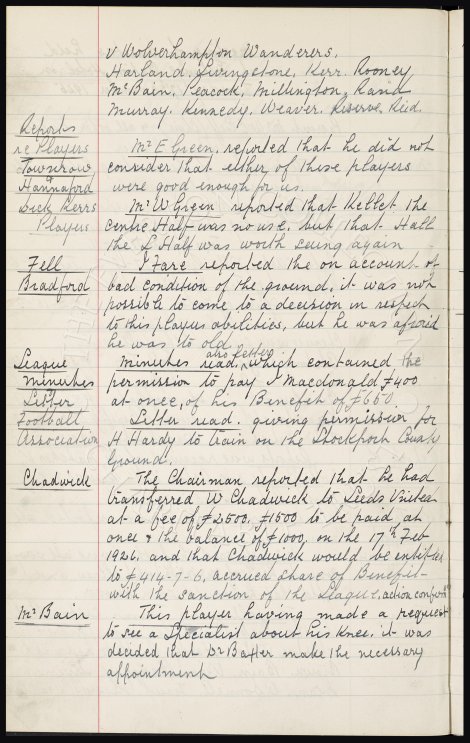 v Wolverhampton Wanderers.
Harland. Livingstone, Kerr. Rooney
McBain. Peacock. Millington. Rand
Murray. Kennedy. Weaver. Reserve. Reid.
Reports
re Players
Townrow
Hannaford
Mr E Green. reported that he did not
consider that either, of these players
were good enough for us.
Dick Kerrs
Players
Mr W Green reported that Kellet the
centre Half was no use. but that Hall
the L Half was worth seeing again
Fell
Bradford
J Fare reported the on account of
bad condition of the ground, it was not
possible to come to a decision in respect
to this players abilities, but he was afraid
he was to old
League
minutes
Letter
minutes read, also letter which contained the
permission to pay J Macdonald £400
at once, of his Benefit of £650.
Football
Association
Letter read. giving permission for
H Hardy to train on the Stockport County
Ground.
Chadwick
The Chairman reported that he had
transferred W Chadwick to Leeds United
at a fee of £2500. £1500 to be paid at
once & the balance of £1000, on the 17th Feb
1926, and that Chadwick would be entitled
to £414-7-6, accrued share of Benefit
with the sanction of the League, action confirmd
McBain
This player having made a request
to see a Specialist about his Knee. it was
decided that Dr Baxter make the necessary
appointment